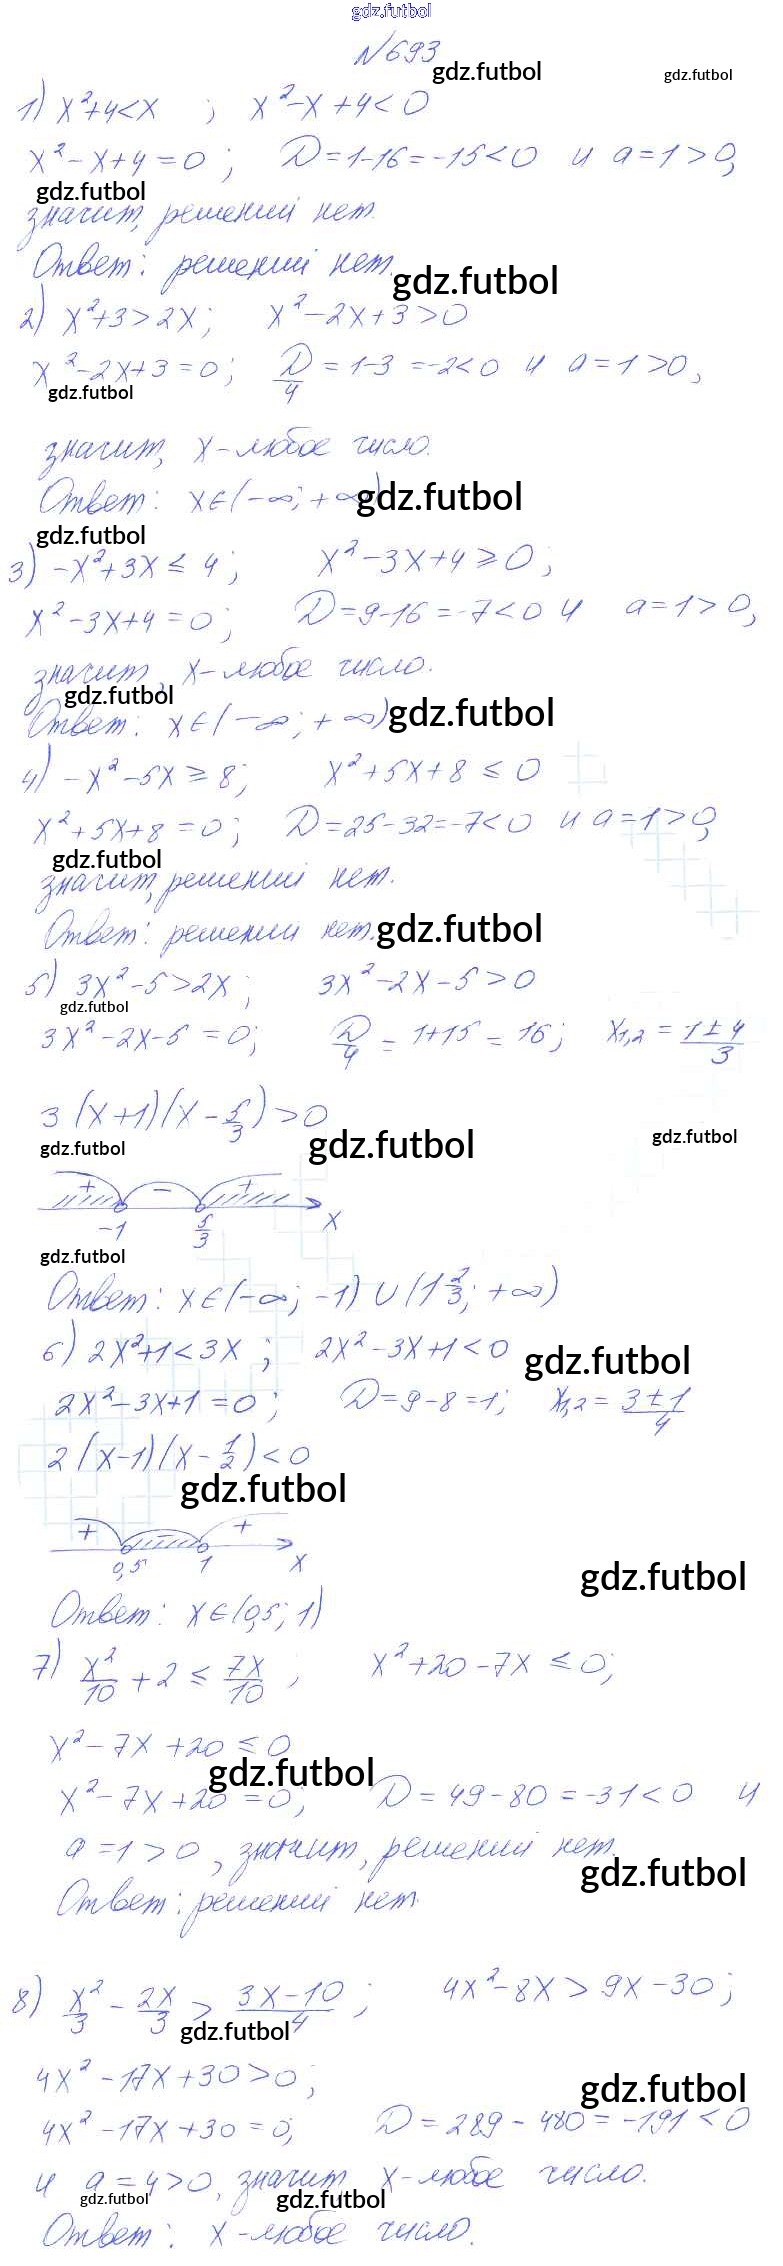 gdz.futbol
№693
gdz.futbol gdz.futbol
1) x²+4<x ; x²-x+4<0
x²-x+4=0; D=1-16=-15<0 и a=1>0,
gdz.futbol
значит, решений нет.
Ответ: решений нет.
gdz.futbol
2) x²+3>2x; x²-2x+3>0
x²-2x+3=0; D/4 = 1-3 =-2<0 и a=1>0,
gdz.futbol
значит, x-любое число.
Ответ: x∈(-∞; +∞)
gdz.futbol
gdz.futbol
3) -x²+3x≤4; x²-3x+4≥0;
x²-3x+4=0; D=9-16=-7<0 и a=1>0,
значит, x-любое число.
gdz.futbol
Ответ: x∈(-∞; +∞)
gdz.futbol
4) -x²-5x≥8; x²+5x+8≤0
x²+5x+8=0; D=25-32=-7<0 и a=1>0,
gdz.futbol
значит, решений нет.
Ответ: решений нет.
gdz.futbol
5) 3x²-5>2x; 3x²-2x-5>0
gdz.futbol
3x²-2x-5=0; D/4 = 1+15 = 16; x1,2 = (1±4)/3
3(x+1)(x-5/3)>0
gdz.futbol gdz.futbol gdz.futbol
+ - +
-1 5/3 x
gdz.futbol
Ответ: x∈(-∞; -1)∪(1 2/3; +∞)
6) 2x²+1<3x; 2x²-3x+1<0
gdz.futbol
2x²-3x+1=0; D=9-8=1; x1,2 = (3±1)/4
2(x-1)(x-1/2)<0
gdz.futbol
+ - +
0,5 1 x
gdz.futbol
Ответ: x∈(0,5; 1)
7) x²/10 + 2 ≤ 7x/10; x²+20-7x≤0;
x²-7x+20≤0
gdz.futbol
x²-7x+20=0; D=49-80=-31<0 и
a=1>0, значит, решений нет.
gdz.futbol
Ответ: решений нет.
8) x²/3 - 2x/3 > (3x-10)/4; 4x²-8x>9x-30;
gdz.futbol
4x²-17x+30>0;
gdz.futbol
4x²-17x+30=0; D=289-480=-191<0
и a=4>0, значит, x-любое число.
gdz.futbol gdz.futbol
Ответ: x-любое число.